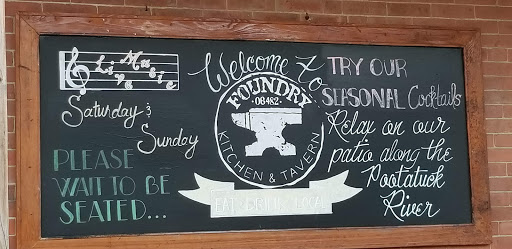 Live Music
Saturday &
Sunday
PLEASE
WAIT TO BE
SEATED...
Welcome to
FOUNDRY
·06482·
KITCHEN & TAVERN
EAT DRINK LOCAL
TRY OUR
SEASONAL Cocktails
Relax on our
patio along the
Pootatuck
River